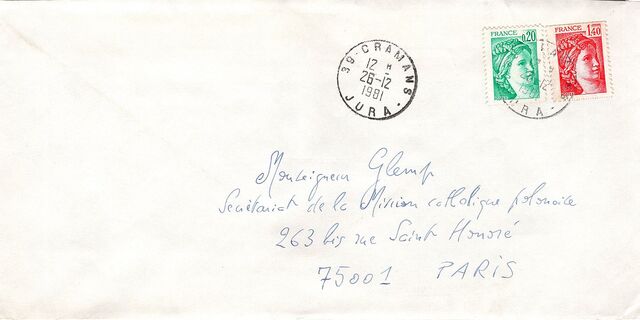 39-CRAMANS
12 H
26-12
1981
JURA
FRANCE
0,20
FRANCE
1,40
URA
Monseigneur Glemp
Secrétariat de la Mission catholique polonaise
263 bis rue Saint Honoré
75001 PARIS